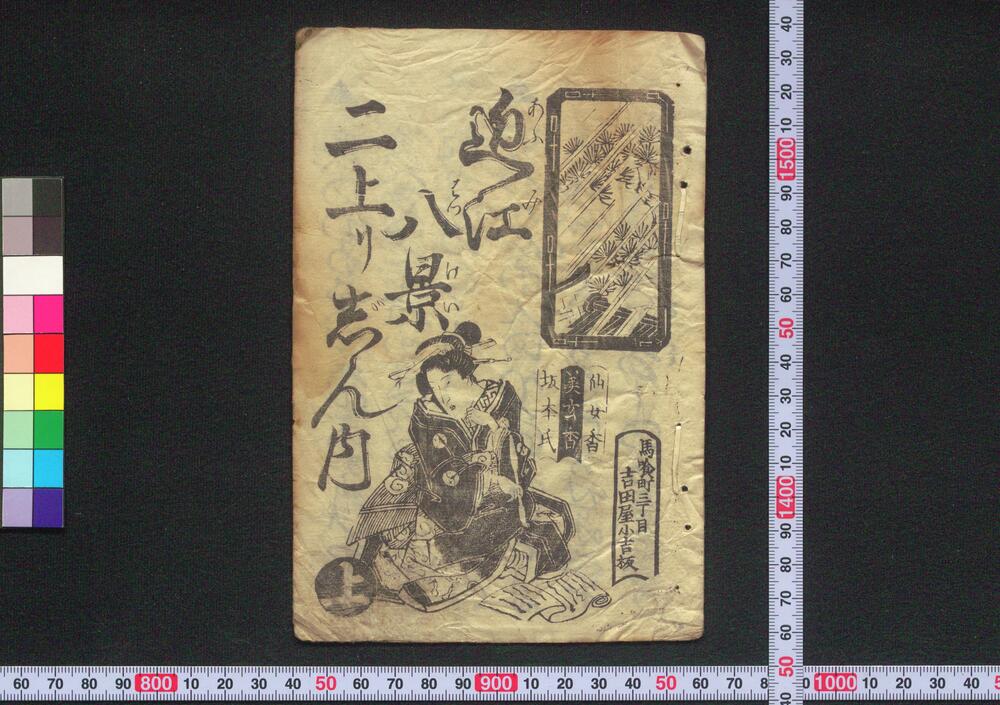 近江
あふ
み
八景
はつ
けい
二上リ志ん内
仙女香
美玄香
坂本氏
馬喰町三丁目
吉田屋小吉板
上
60 70 80 90 800 10 20 30 40 50 60 70 80 90 900 10 20 30 40 50 60 70 80 1000 10 20 30 40
40 30 20 10 1500 90 80 70 60 50 40 30 20 10 1400 90 80 70 60 50 40